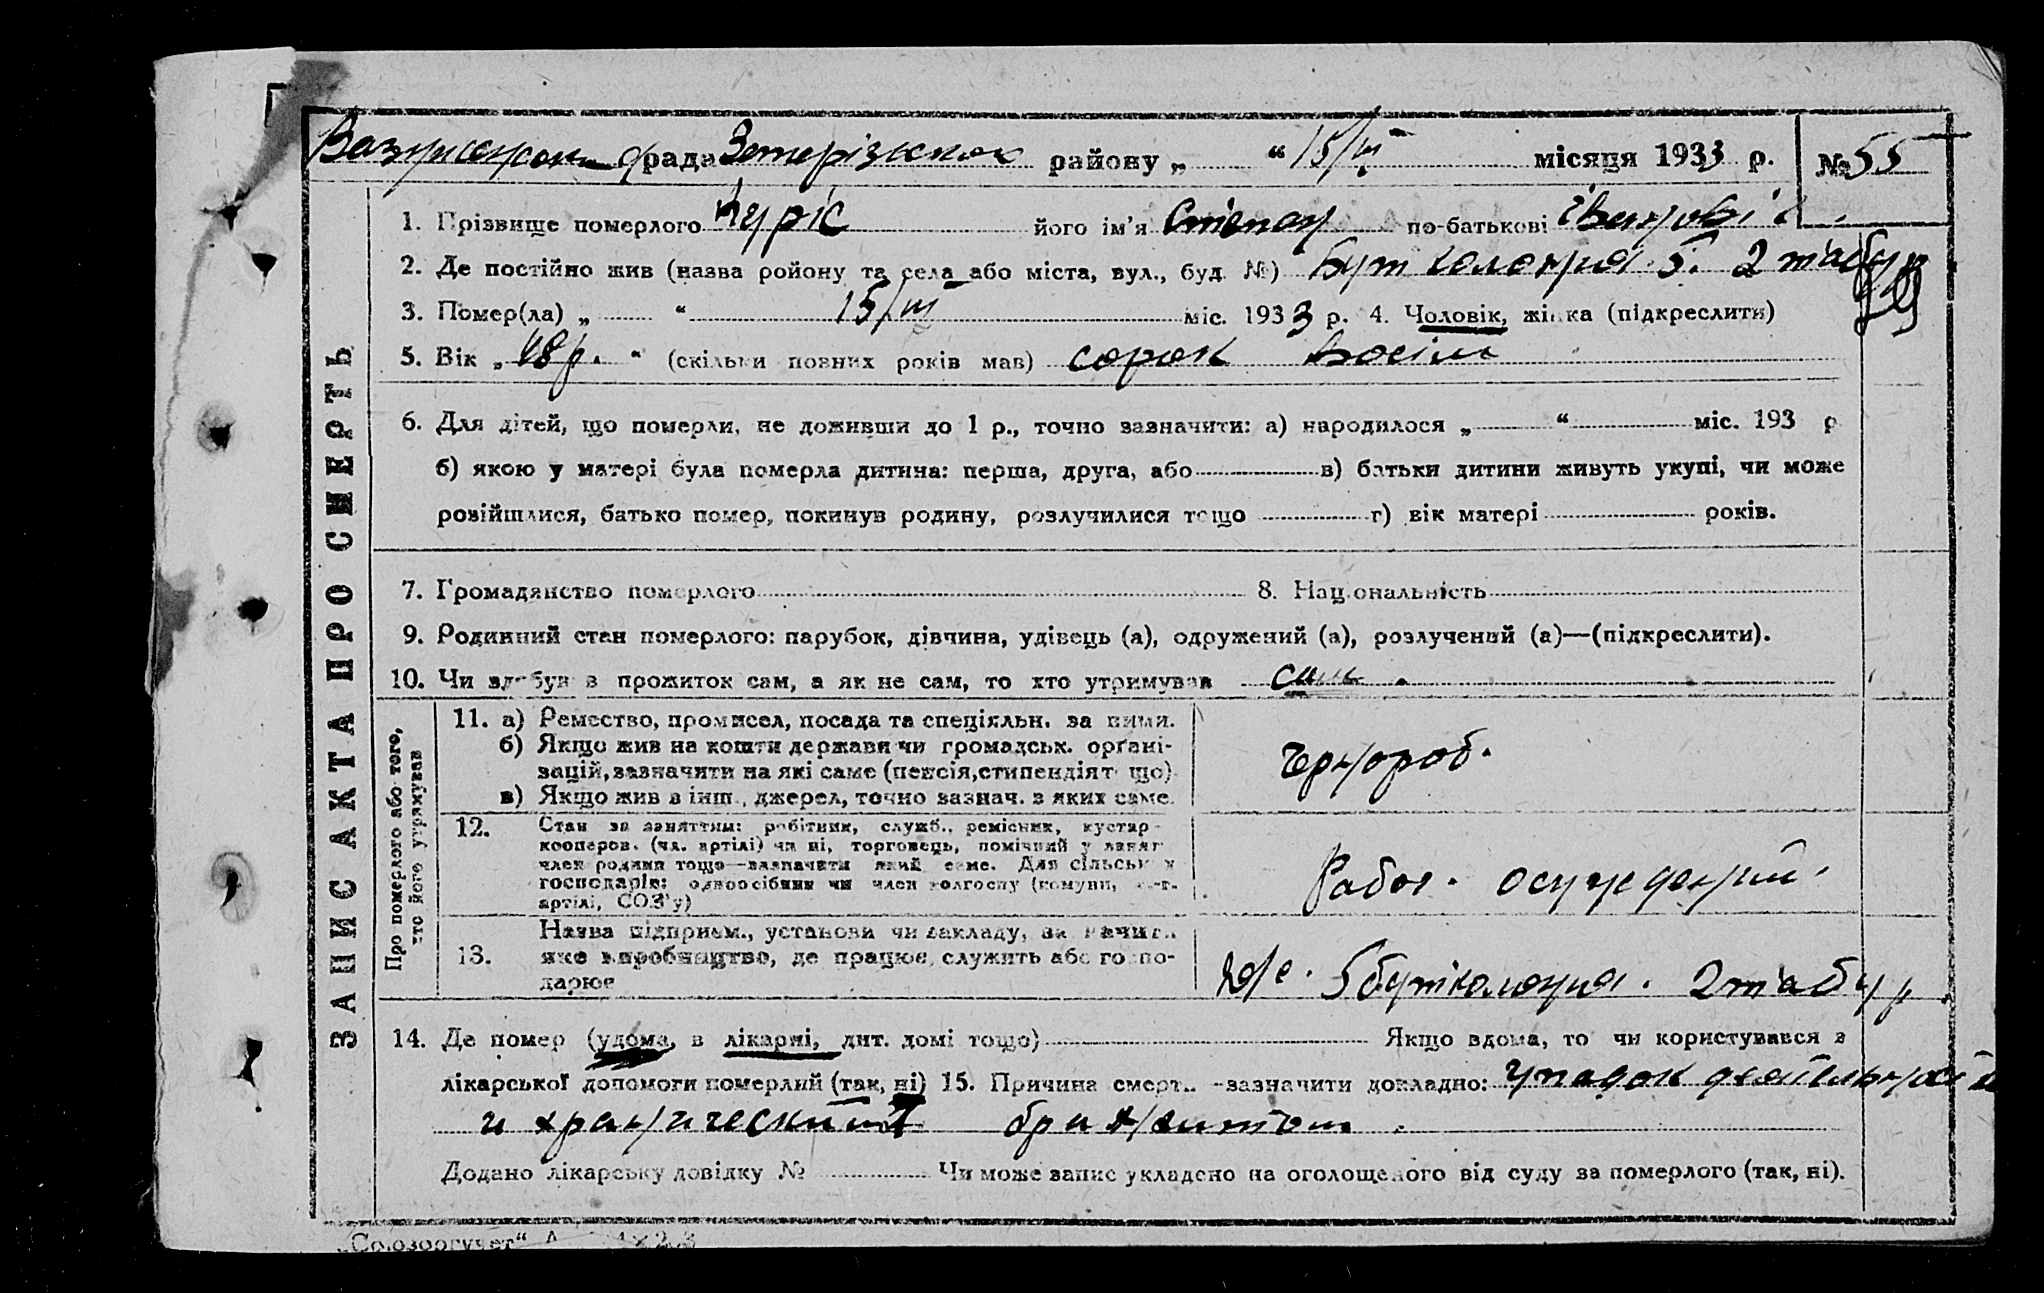 рада району „ “ 15/III місяця 1933 р. № 55
1. Прізвище померлого його ім'я Степан по-батькові Іванові
2. Де постійно жив (назва ройону та села або міста, вул., буд. №) Бут колония 5. 2 табур
3. Помер(ла) „ “ 15/III міс. 1933 р. 4. Чоловік, жінка (підкреслити)
5. Вік „ 48 р. “ (скільки повних років мав) сорок восім
6. Для дітей, що померли, не доживши до 1 р., точно зазначити: а) народилося „ “ міс. 193 р
б) якою у матері була померла дитина: перша, друга, або в) батьки дитини живуть укупі, чи може
розійшлися, батько помер, покинув родину, розлучилися тощо г) вік матері років.
7. Громадянство померлого 8. Національність
9. Родинний стан померлого: парубок, дівчина, удівець (а), одружений (а), розлучений (а)—(підкреслити).
10. Чи здобував прожиток сам, а як не сам, то хто утримував сам.
ЗАПИС АКТА ПРО СМЕРТЬ
Про померлого або того, хто його утримував
11. а) Ремество, промисел, посада та спеціяльн. за ними.
б) Якщо жив на кошти держави чи громадськ. органі-
зацій, зазначити на які саме (пенсія, стипендія т що)
в) Якщо жив з інш., джерел, точно зазнач. з яких саме.
чернороб.
12. Стан за заняттям: робітник, служб., ремісник, кустар-
кооперов. (чл. артілі) чи ні, торговець, помічний у занят
член родини тощо—зазначити який саме. Для сільськ х
господарів: одноосібник чи член колгоспу (комуни, с.-г.
артілі, СОЗ'у)
Рабоч. осужденний.
Назва підприєм., установи чи закладу, за
13. яке виробництво, де працює, служить або госпо-
дарює
5 буткколония. 2 табур.
14. Де помер (удома, в лікарні, дит. домі тощо) Якщо вдома, то чи користувався з
лікарської допомоги померлий (так, ні) 15. Причина смерт.. -зазначити докладно: Упадок деятельности
и хроническим бронхитом.
Додано лікарську довідку № Чи може запис укладено на оголошеного від суду за померлого (так, ні).
„Союзоргучет“